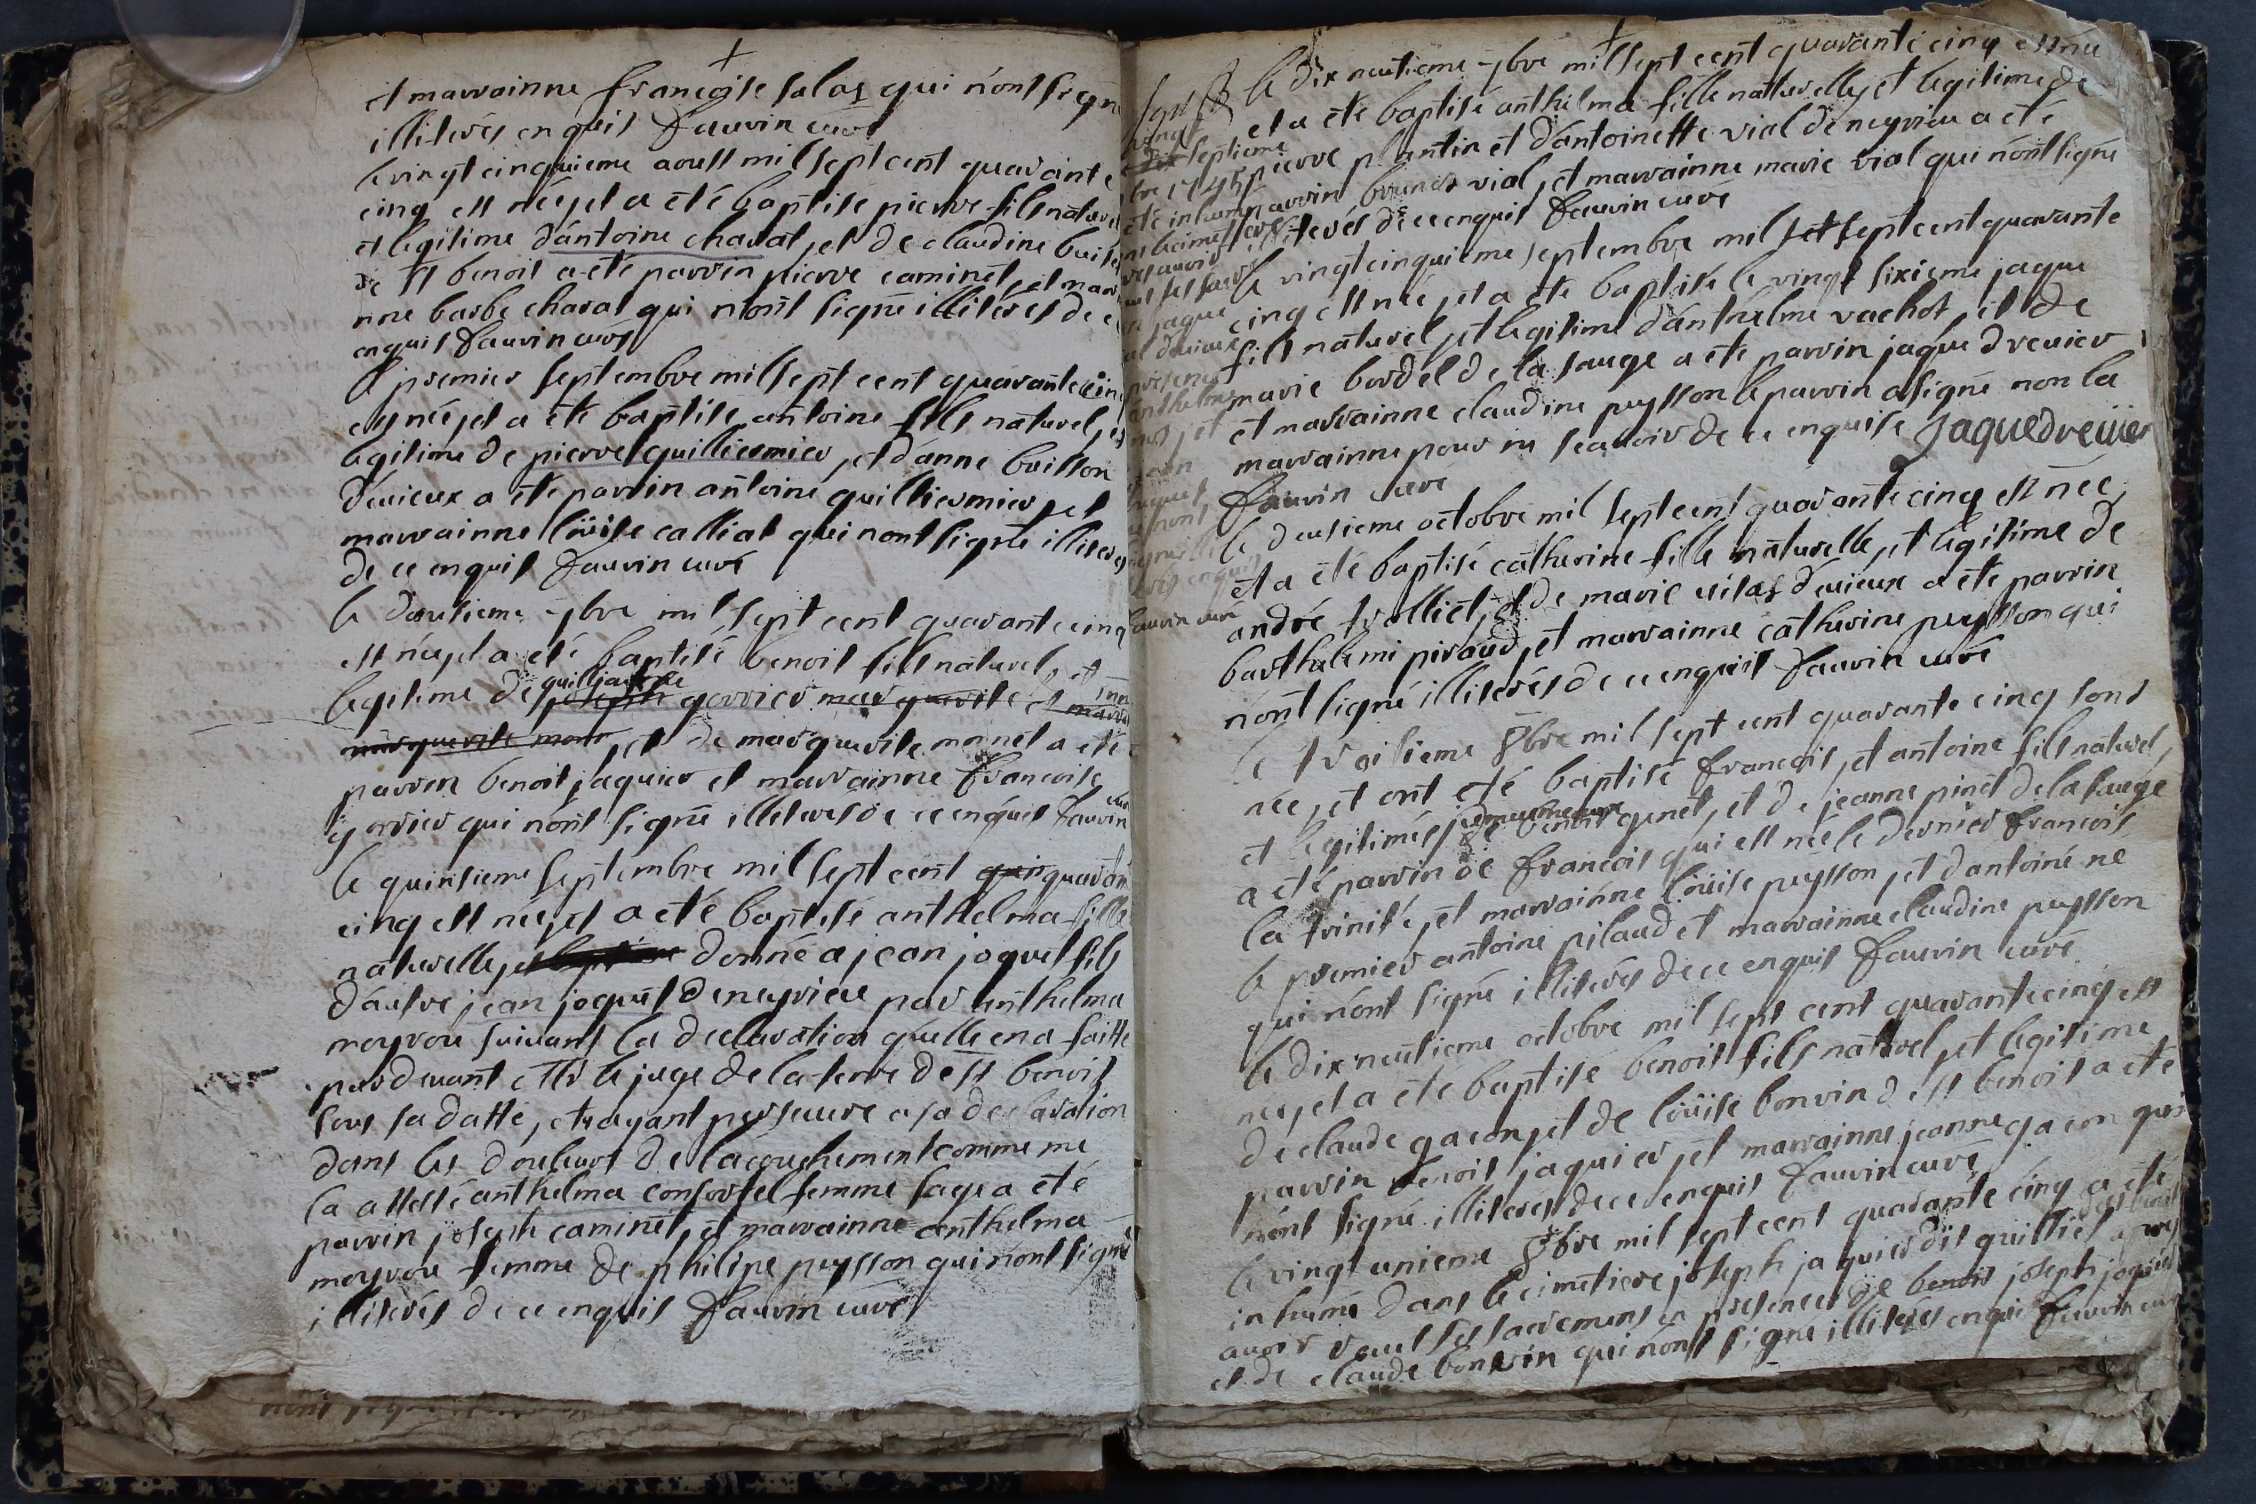 et marrainne francoise salas qui n'ont signé
illiterés enquis fauvin curé
le vingt cinquieme aoust mil sept cent quarante
cinq est né, et a eté baptisé pierre fils naturel
et legitime d'antoine charat, et de claudine buisson
de st benoit a eté parrin pierre caminet, et marrai
nne barbe charat qui n'ont signé illiterés de ce
enquis fauvin curé
le premier septembre mil sept cent quarante cinq
est né, et a eté baptisé antoine fils naturel, et
legitime de pierre quilliermier, et d'anne buisson
d'evieux a eté parrin antoine quilliermier, et
marrainne loüise calliat qui n'ont signé illiterés
de ce enquis fauvin curé
le dousieme 7bre mil sept cent quarante cinq
est né, et a eté baptisé benoit fils naturel, et
legitime de joseph gorrier marguerite et
marguerite monn, et de marguerite monnet a eté
parrin benoit jaquier et marrainne francoise
gorrier qui n'ont signé illiterés de ce enquis fauvin curé
le quinsieme septembre mil sept cent quin quarante
cinq est née, et a eté baptisé anthelma fille
naturelle, donné a jean joquet fils
d'autre jean joquet de neyrieu par anthelma
meyrou suivant la declaration qu'elle en a faitte
pardevant Mr le juge de la terre de st benoit
sous sa datte, et ayant perseuere a sa declaration
dans les douleurs de l'acouchement comme me
la attesté anthelma consortel femme sage a eté
parrin joseph caminet, et marrainne anthelma
meyrou femme de philipe peysson qui n'ont signé
illiterés de ce enquis fauvin curé
le dix neutieme 7bre mil sept cent quarante cinq est née
et a eté baptisé anthelma fille naturelle, et legitime de
pierre plantin et d'antoinette vial de neyrieu a eté
parrin vial, et marrainne marie vial qui n'ont signé
illiterés de ce enquis fauvin curé
septieme
1745
le vingt cinquieme septembre mil set sept cent quarante
cinq est né, et a eté baptisé le vingt sixieme jaque
fils naturel, et legitime d'anthelme vachot, et de
marie bordel de la sauge a eté parrin jaque dreuier
et marrainne claudine peysson le parrin a signé non la
marrainne pour ne scauoir de ce enquise jaque dreuier
fauvin curé
le deusieme octobre mil sept cent quarante cinq est née,
et a eté baptisé catherine fille naturelle, et legitime de
andré trolliet, et de marie vilas d'evieux a eté parrin
barthelemi piraud, et marrainne catherine peysson qui
n'ont signé illiterés de ce enquis fauvin curé
le troisieme 8bre mil sept cent quarante cinq sont
née, et ont eté baptisé francois, et antoine fils naturel,
et legitimes de benoit genet, et de jeanne pinet de la sauge
a eté parrin de francois qui est né le dernier francois
la trinité, et marrainne loüise peysson, et d'antoine ne
le premier antoine pilaud et marrainne claudine peysson
qui n'ont signé illiterés de ce enquis fauvin curé
le dix neutieme octobre mil sept cent quarante cinq est
né, et a eté baptisé benoit fils naturel, et legitime
de claude gacon, et de loüise bonvin de st benoit a eté
parrin benoit jaquier, et marrainne jeanne gacon qui
n'ont signé illiterés de ce enquis fauvin curé
le vingt unieme 8bre mil sept cent quarante cinq a eté
inhumé dans le cimetiere joseph jaquier dit quilliet apres
avoir receut ses sacremens en presence de benoit joseph jaquier
et de claude bonvin qui n'ont signé illiterés enquis fauvin curé